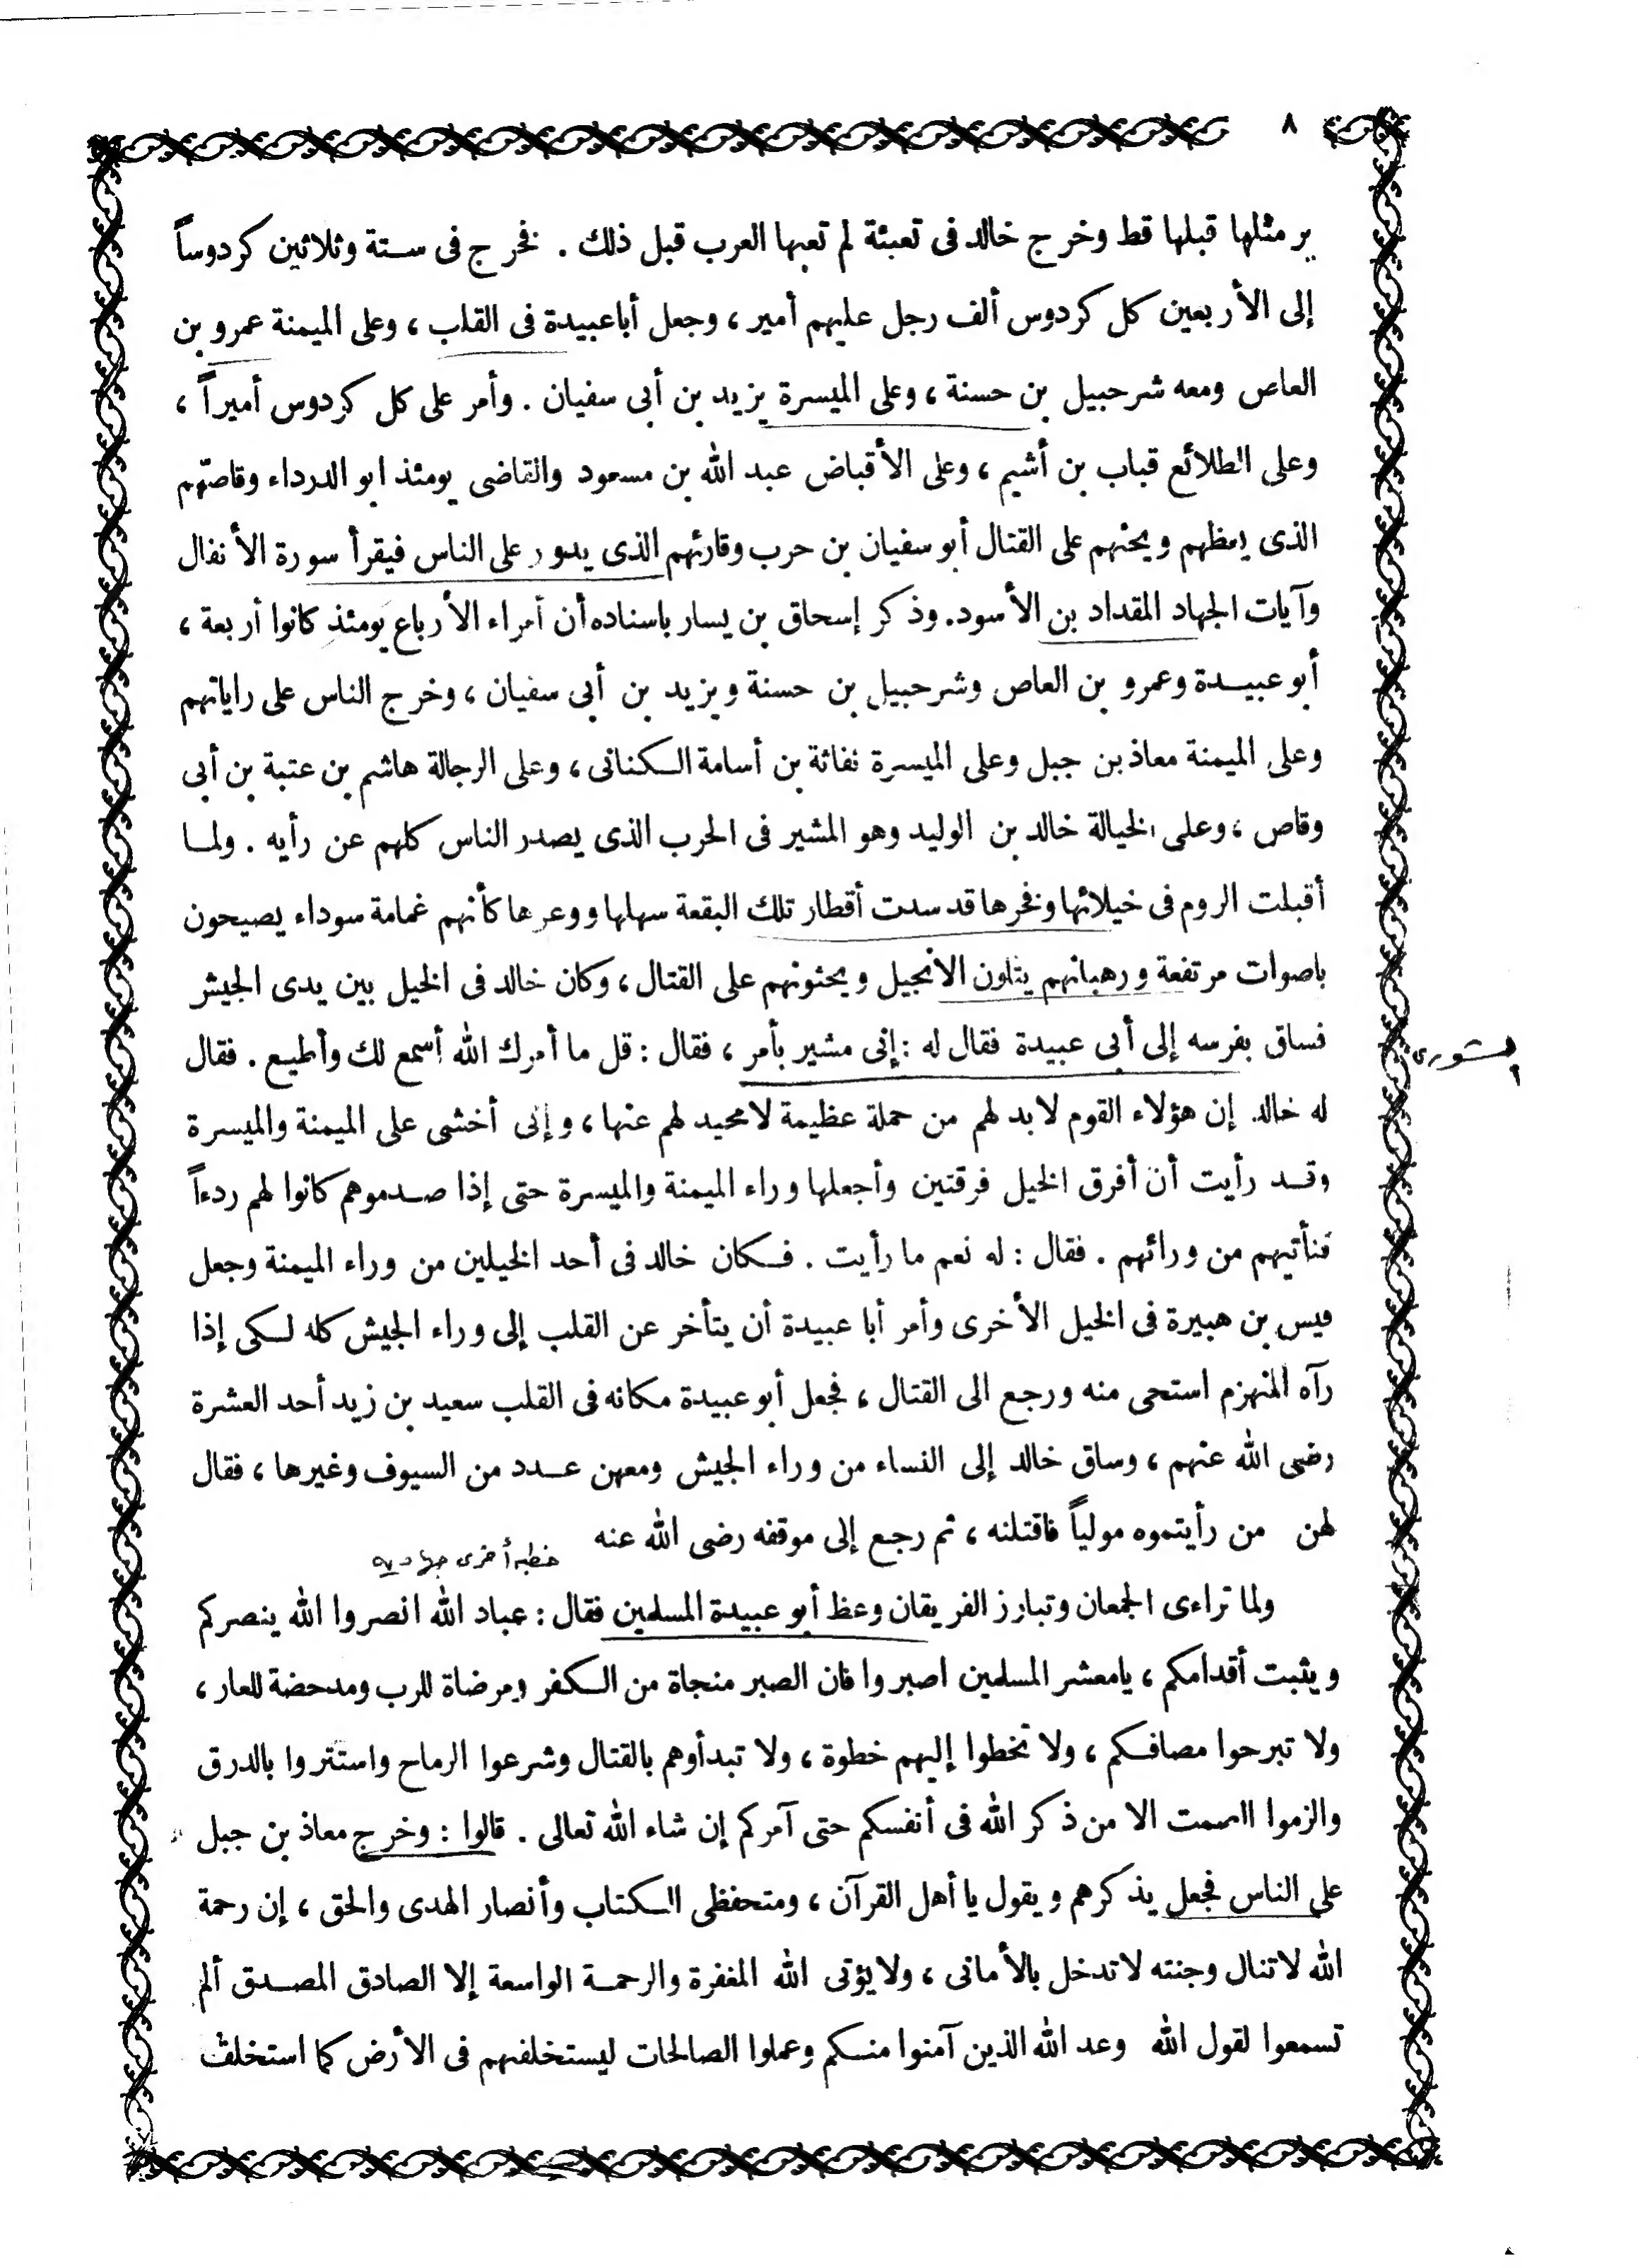 ٨
ير مثلها قبلها قط وخرج خالد فى تعبئة لم تعبها العرب قبل ذلك . فخرج فى ستة وثلاثين كردوساً
إلى الأربعين كل كردوس ألف رجل عليهم أمير ، وجعل أباعبيدة فى القلب ، وعلى الميمنة عمرو بن
العاص ومعه شرحبيل بن حسنة ، وعلى الميسرة يزيد بن أبى سفيان . وأمر على كل كردوس أميراً ،
وعلى الطلائع قباب بن أشيم ، وعلى الأقباض عبد الله بن مسعود والقاضى يومئذ ابو الدرداء وقاصّهم
الذى يعظهم ويحثهم على القتال أبو سفيان بن حرب وقارئهم الذى يدور على الناس فيقرأ سورة الأنفال
وآيات الجهاد المقداد بن الأسود. وذكر إسحاق بن يسار باسناده أن أمراء الأرباع يومئذ كانوا أربعة ،
أبو عبيدة وعمرو بن العاص وشرحبيل بن حسنة ويزيد بن أبى سفيان ، وخرج الناس على راياتهم
وعلى الميمنة معاذ بن جبل وعلى الميسرة نفاثة بن أسامة الكنانى ، وعلى الرجالة هاشم بن عتبة بن أبى
وقاص ، وعلى الخيالة خالد بن الوليد وهو المشير فى الحرب الذى يصدر الناس كلهم عن رأيه . ولما
أقبلت الروم فى خيلائها وفخرها قد سدت أقطار تلك البقعة سهلها ووعرها كأنهم غمامة سوداء يصيحون
باصوات مرتفعة ورهبانهم يتلون الانجيل ويحثونهم على القتال ، وكان خالد فى الخيل بين يدى الجيش
فساق بفرسه إلى أبى عبيدة فقال له : إنى مشير بأمر ، فقال : قل ما أمرك الله أسمع لك وأطيع . فقال
له خالد إن هؤلاء القوم لا بد لهم من حملة عظيمة لا محيد لهم عنها ، وإنى أخشى على الميمنة والميسرة
وقد رأيت أن أفرق الخيل فرقتين وأجعلها وراء الميمنة والميسرة حتى إذا صدموهم كانوا لهم ردءاً
فنأتيهم من ورائهم . فقال : له نعم ما رأيت . فكان خالد فى أحد الخيلين من وراء الميمنة وجعل
قيس بن هبيرة فى الخيل الأخرى وأمر أبا عبيدة أن يتأخر عن القلب إلى وراء الجيش كله لكى إذا
رآه المنهزم استحى منه ورجع الى القتال ، فجعل أبو عبيدة مكانه فى القلب سعيد بن زيد أحد العشرة
رضى الله عنهم ، وساق خالد إلى النساء من وراء الجيش ومعهن عدد من السيوف وغيرها ، فقال
لهن من رأيتموه مولياً فاقتلنه ، ثم رجع إلى موقفه رضى الله عنه
خطبه أخرى جهاديه
ولما تراءى الجمعان وتبارز الفريقان وعظ أبو عبيدة المسلمين فقال : عباد الله انصروا الله ينصركم
ويثبت أقدامكم ، يامعشر المسلمين اصبروا فان الصبر منجاة من الكفر ومرضاة للرب ومدحضة للعار ،
ولا تبرحوا مصافكم ، ولا تخطوا إليهم خطوة ، ولا تبدأوهم بالقتال وشرعوا الرماح واستتروا بالدرق
والزموا الصمت الا من ذكر الله فى أنفسكم حتى آمركم إن شاء الله تعالى . قالوا : وخرج معاذ بن جبل
على الناس فجعل يذكرهم ويقول يا أهل القرآن ، ومتحفظى الكتاب وأنصار الهدى والحق ، إن رحمة
الله لا تنال وجنته لا تدخل بالأمانى ، ولا يؤتى الله المغفرة والرحمة الواسعة إلا الصادق المصدق ألم
تسمعوا لقول الله وعد الله الذين آمنوا منكم وعملوا الصالحات ليستخلفنهم فى الأرض كما استخلف